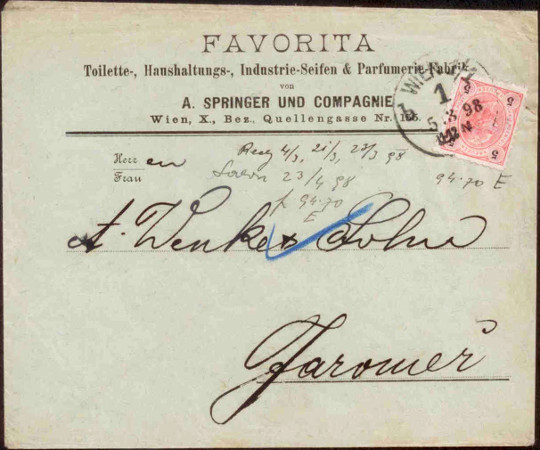 FAVORITA
Toilette-, Haushaltungs-, Industrie-Seifen & Parfumerie-Fabrik
von
A. SPRINGER UND COMPAGNIE
Wien, X., Bez., Quellengasse Nr.
WIEN
1
5. 3. 98
5
5
Herr en
Frau
4/3, 21/3, 23/3 98
23/4 98
94.70
E
94.70 E
A. Wenke & Sohn
Jaroměř